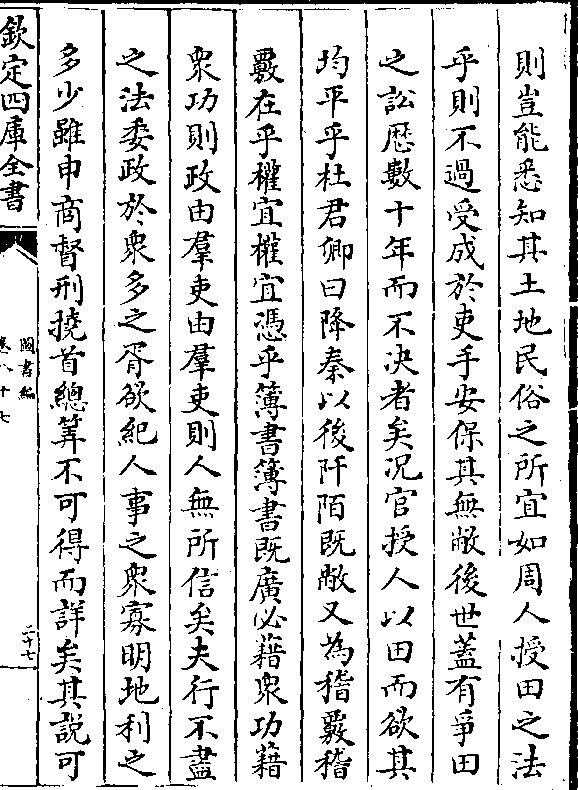 則豈能悉知其土地民俗之所宜如周人授田之法
乎則不過受成於吏手安保其無敝後世蓋有爭田
之訟歴數十年而不決者矣況官授人以田而欲其
均平乎杜君卿曰降秦以後阡陌既敝又為稽覈稽
覈在乎權宜權宜憑乎簿書簿書既廣必藉衆功藉
衆功則政由羣吏由羣吏則人無所信矣夫行不盡
之法委政於衆多之胥欲紀人事之衆寡明地利之
多少雖申商督刑撓首總筭不可得而詳矣其說可
欽定四庫全書
圖書編
卷八十七
二十七